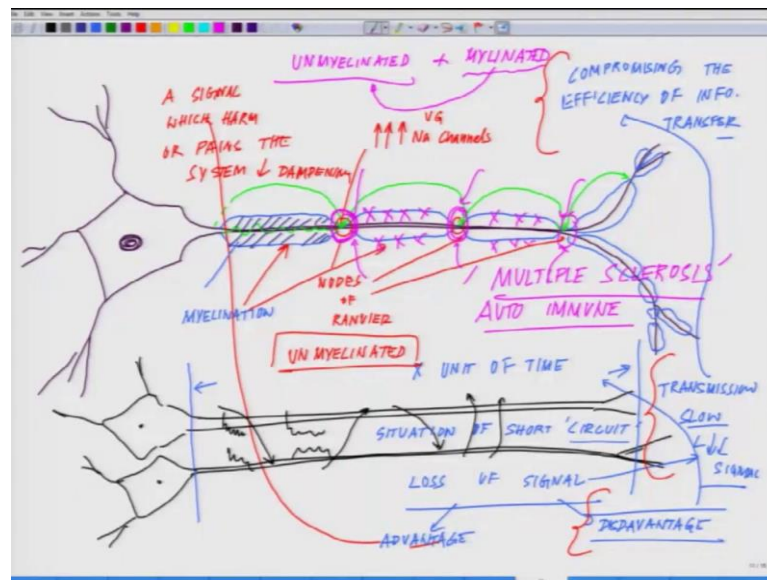 File Edit View Insert Actions Tools Help
UNMYELINATED + MYLINATED
COMPROMISING THE
EFFICIENCY OF INFO.
TRANSFER
A SIGNAL
WHICH HARM
OR PAINS THE
SYSTEM ↓ DAMPENING
VG
↑↑↑ Na Channels
MYELINATION
NODES
OF
RANVIER
UNMYELINATED
'MULTIPLE SCLEROSIS'
AUTO IMMUNE
X UNIT OF TIME
SITUATION OF SHORT 'CIRCUIT'
LOSS OF SIGNAL
TRANSMISSION
SLOW
SIGNAL
ADVANTAGE
DISDAVANTAGE